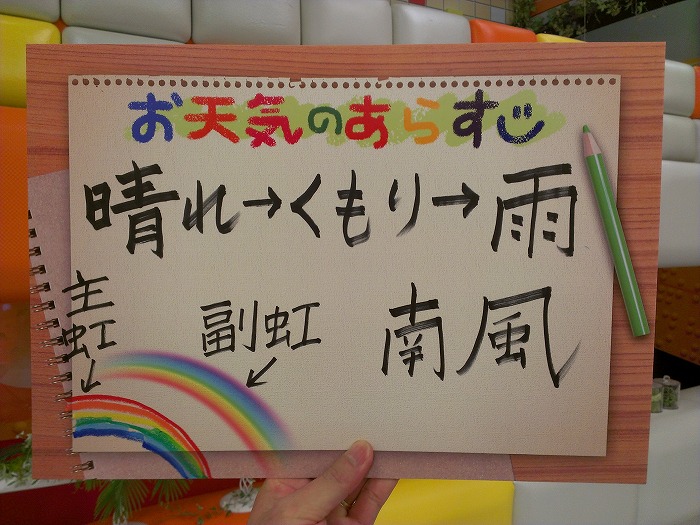 お天気のあらすじ
晴れ→くもり→雨
主虹
副虹
南風